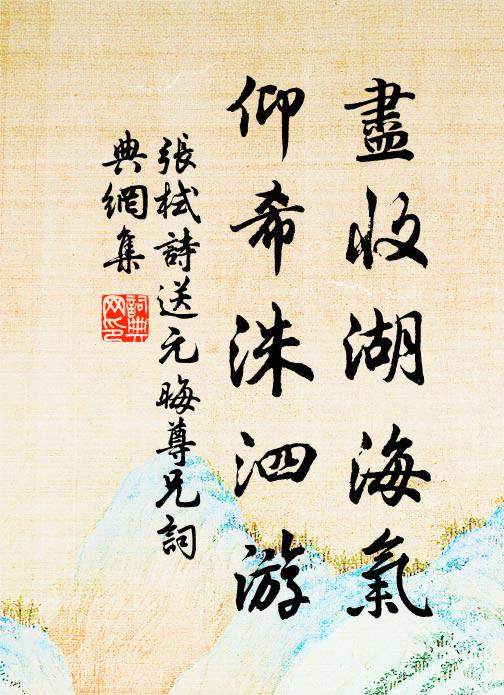 盡收湖海氣
仰希洙泗游
張栻詩送元晦尊兄詞
典網集
詞典网印